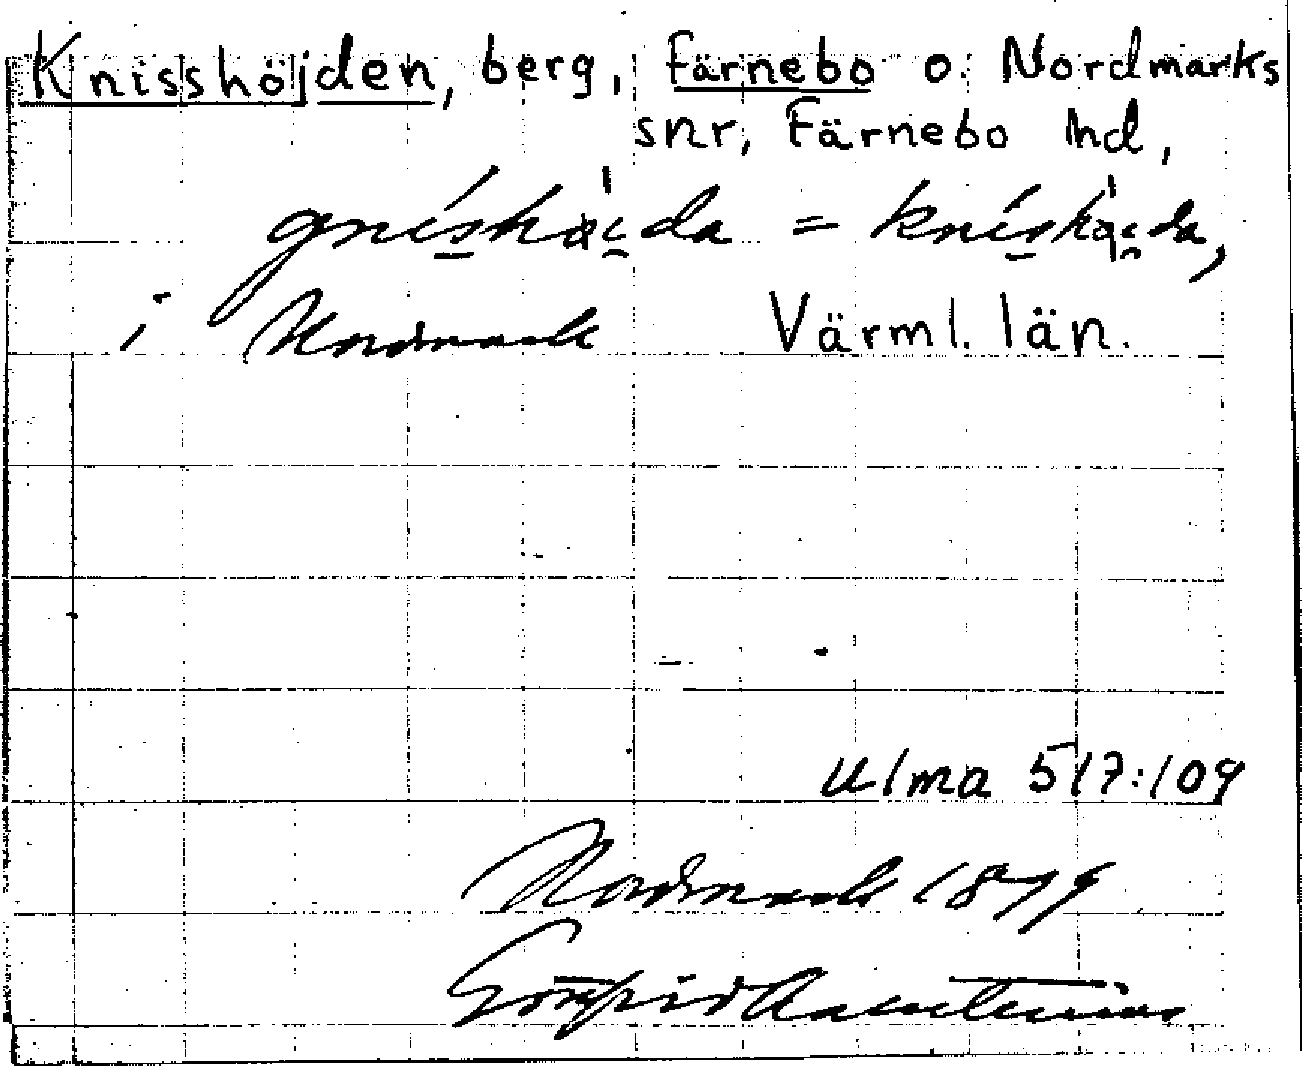 Knisshöjden, berg, Färnebo o. Nordmarks
snr, Färnebo hd,
gníshȧi̯da = kníshȧi̯da,
i Nordmark Värml. län.
Ulma 517:109
Nordmark 1879
Gottfrid Kallstenius